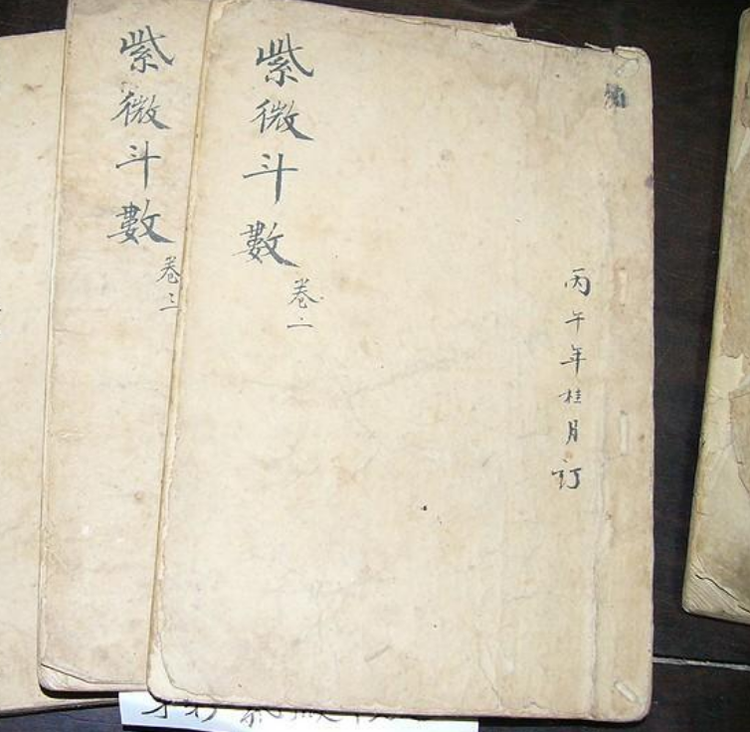 紫微斗數
卷二
丙午年桂月订
紫微斗數
卷三